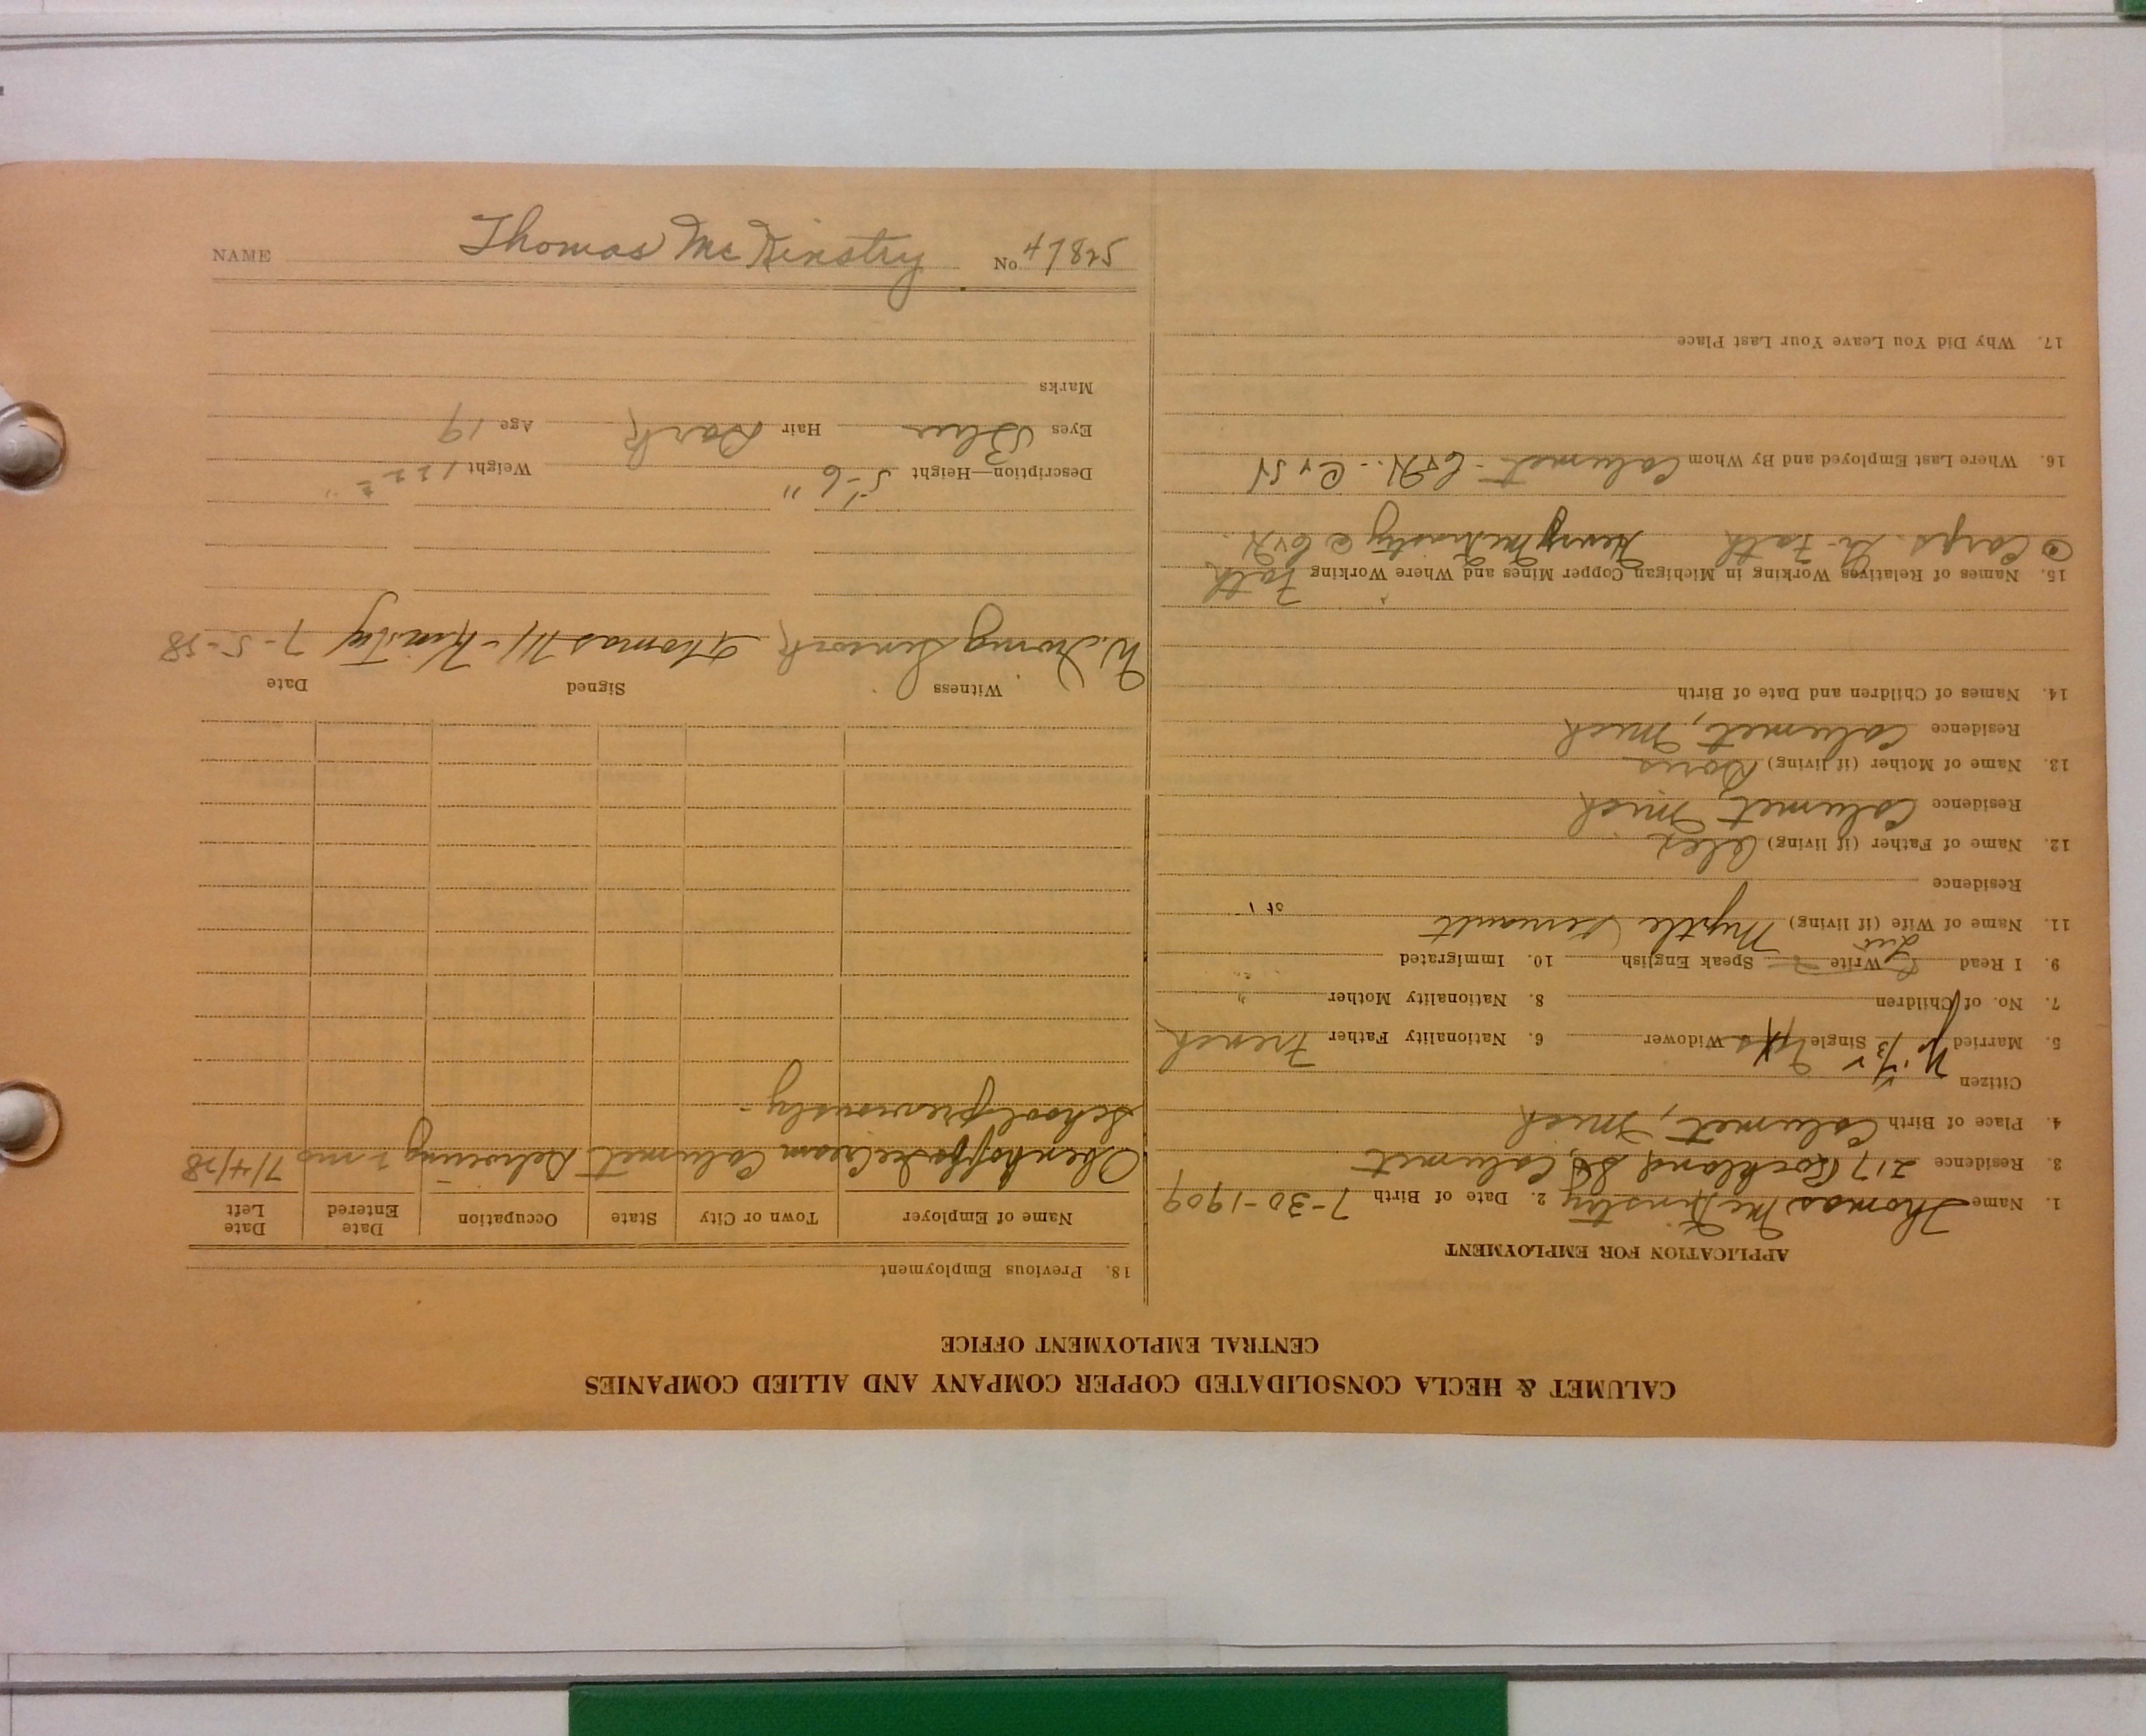 NAME Thomas McKinstry No 47825
CALUMET & HECLA CONSOLIDATED COPPER COMPANY AND ALLIED COMPANIES
CENTRAL EMPLOYMENT OFFICE
APPLICATION FOR EMPLOYMENT
1. Name Thomas McKinstry 2. Date of Birth 7-30-1909
3. Residence 217 Rockland St, Calumet
4. Place of Birth Calumet, Mich
Citizen
5. Married Single Widower 6. Nationality Father French
7. No. of Children 8. Nationality Mother "
9. I Read Write Speak English 10. Immigrated
11. Name of Wife (if living) Myrtle
Residence
12. Name of Father (if living) Alex
Residence Calumet, Mich
13. Name of Mother (if living) Doris
Residence Calumet, Mich
14. Names of Children and Date of Birth
15. Names of Relatives Working in Michigan Copper Mines and Where Working Fath
Henry McKinstry @ C&H.
16. Where Last Employed and By Whom Calumet - C&H.
17. Why Did You Leave Your Last Place
18. Previous Employment
Name of Employer Town or City State Occupation Date Entered Date Left
Ice Cream Calumet Delivering 2 mo 7/4/28
School previously -
Witness Signed Date
Thomas McKinstry 7-5-28
Description—Height 5'-6" Weight 122
Eyes Blue Hair Dark Age 19
Marks